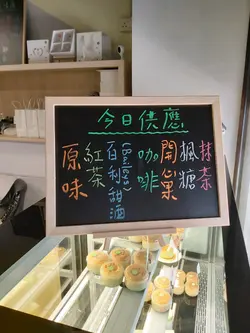 今日供應
原味
紅茶
百利甜酒
(Baileys)
咖啡
開心果
楓糖
抹茶